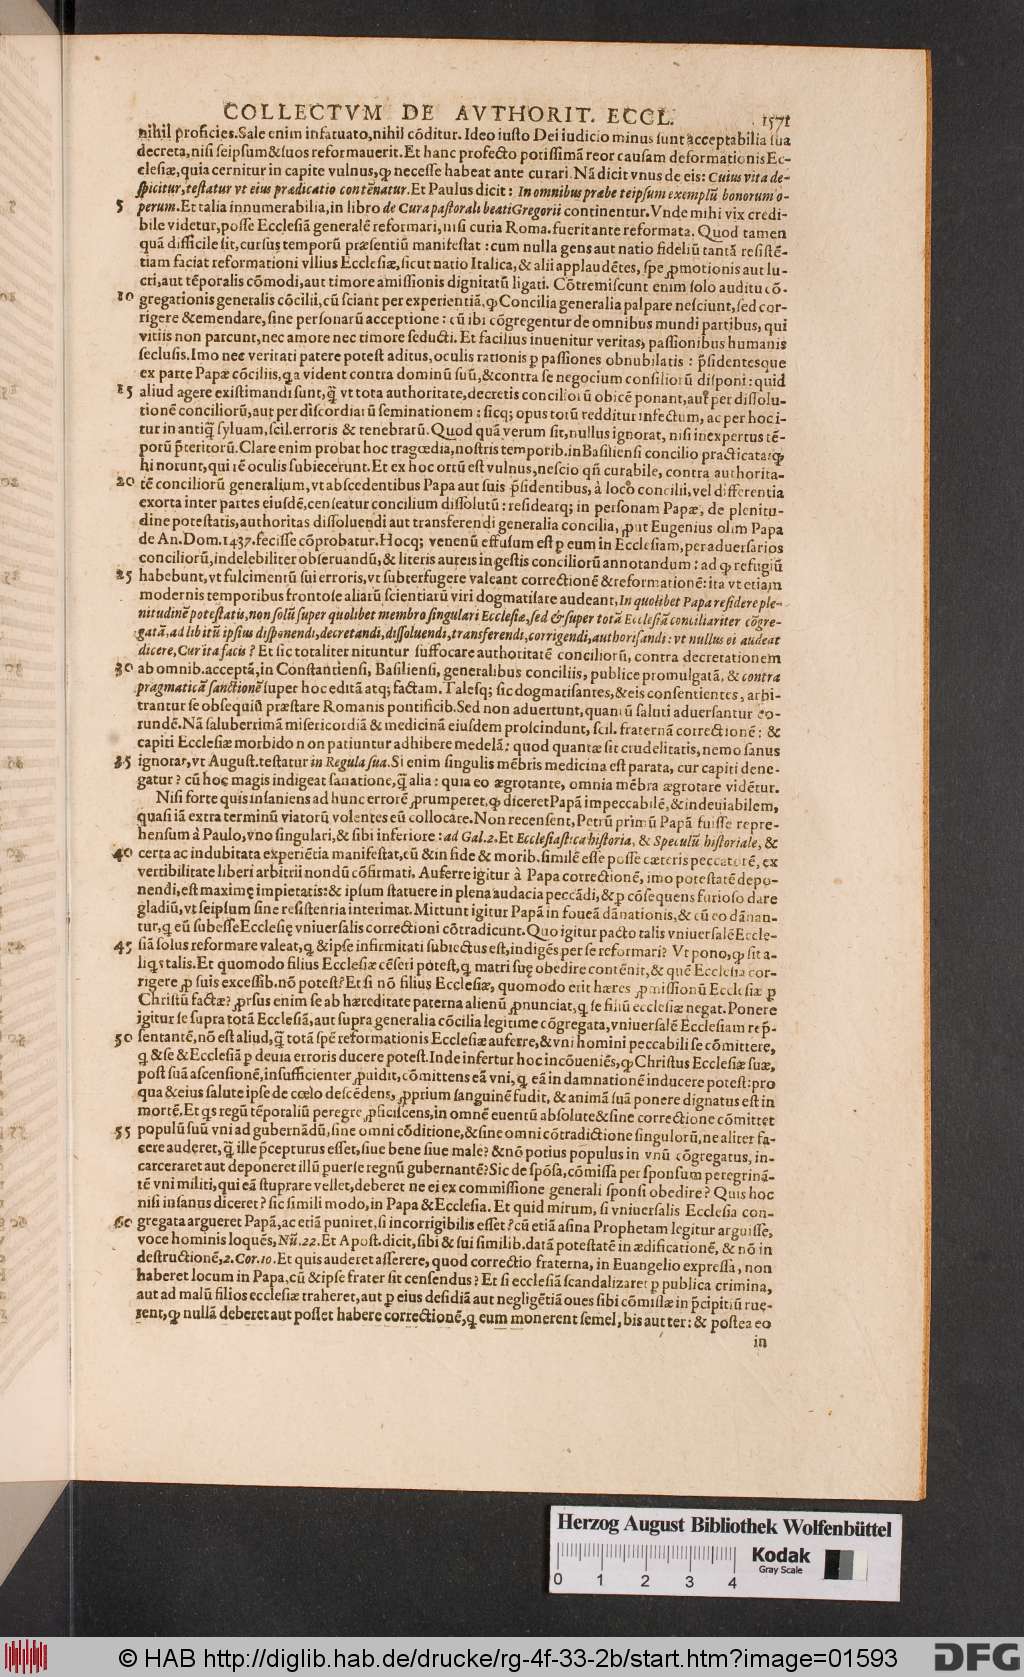 COLLECTVM DE AVTHORIT. ECCL. 1571
nihil proficies. Sale enim infatuato, nihil cōditur. Ideo iusto Dei iudicio minus sunt acceptabilia sua
decreta, nisi seipsum & suos reformauerit. Et hanc profecto potissimā reor causam deformationis Ec-
clesiæ, quia cernitur in capite vulnus, ꝙ necesse habeat ante curari. Nā dicit vnus de eis: Cuius vita de-
spicitur, testatur vt eius prædicatio contēnatur. Et Paulus dicit: In omnibus præbe teipsum exemplū bonorum o-
5 perum. Et talia innumerabilia, in libro de Cura pastorali beati Gregorii continentur. Vnde mihi vix credi-
bile videtur, posse Ecclesiā generalē reformari, nisi curia Roma. fuerit ante reformata. Quod tamen
quā difficile sit, cursus temporū præsentiū manifestat: cum nulla gens aut natio fideliū tantā resistē-
tiam faciat reformationi vllius Ecclesiæ, sicut natio Italica, & alii applaudētes, spe ꝓmotionis aut lu-
cri, aut tēporalis cōmodi, aut timore amissionis dignitatū ligati. Cōtremiscunt enim solo auditu cō-
10 gregationis generalis cōcilii, cū sciant per experientiā, ꝙ Concilia generalia palpare nesciunt, sed cor-
rigere & emendare, sine personarū acceptione: cū ibi cōgregentur de omnibus mundi partibus, qui
vitiis non parcunt, nec amore nec timore seducti. Et facilius inuenitur veritas, passionibus humanis
seclusis. Imo nec veritati patere potest aditus, oculis rationis ꝑ passiones obnubilatis: p̄sidentesque
ex parte Papæ cōciliis, q̨a vident contra dominū suū, & contra se negocium consiliorū disponi: quid
15 aliud agere existimandi sunt, q̨̄ vt tota authoritate, decretis conciliorū obicē ponant, aut per dissolu-
tionē conciliorū, aut per discordiarū seminationem: sicq; opus totū redditur infectum, ac per hoc i-
tur in antiq̄ syluam, scil. erroris & tenebrarū. Quod quā verum sit, nullus ignorat, nisi inexpertus tē-
porū p̄teritorū. Clare enim probat hoc tragœdia, nostris temporib. in Basiliensi concilio practicata: ꝙ
hi norunt, qui tē oculis subiecerunt. Et ex hoc ortū est vulnus, nescio qn̄ curabile, contra authorita-
20 tē conciliorū generalium, vt abscedentibus Papa aut suis p̄sidentibus, à loco concilii, vel differentia
exorta inter partes eiusdē, censeatur concilium dissolutū: resideatq; in personam Papæ, de plenitu-
dine potestatis, authoritas dissoluendi aut transferendi generalia concilia, ꝓut Eugenius olim Papa
de An. Dom. 1437. fecisse cōprobatur. Hocq; venenū effusum est ꝑ eum in Ecclesiam, per aduersarios
conciliorū, indelebiliter obseruandū, & literis aureis in gestis conciliorū annotandum: ad ꝙ refugiū
25 habebunt, vt fulcimentū sui erroris, vt subterfugere valeant correctionē & reformationē: ita vt etiam
modernis temporibus frontose aliarū scientiarū viri dogmatisare audeant, In quolibet Papa residere ple-
nitudinē potestatis, non solū super quolibet membro singulari Ecclesiæ, sed & super totā Ecclesiā conciliariter cōgre-
gatā, ad libitū ipsius disponendi, decretandi, dissoluendi, transferendi, corrigendi, authorisandi: vt nullus ei audeat
dicere, Cur ita facis? Et sic totaliter nituntur suffocare authoritatē conciliorū, contra decretationem
30 ab omnib. acceptā, in Constantiensi, Basiliensi, generalibus conciliis, publice promulgatā, & contra
pragmaticā sanctionē super hoc editā atq; factam. Talesq; sic dogmatisantes, & eis consentientes, arbi-
trantur se obsequiū præstare Romanis pontificib. Sed non aduertunt, quantū saluti aduersantur eo-
rundē. Nā saluberrimā misericordiā & medicinā eiusdem proscindunt, scil. fraternā correctionē: &
capiti Ecclesiæ morbido non patiuntur adhibere medelā: quod quantæ sit crudelitatis, nemo sanus
35 ignorat, vt August. testatur in Regula sua. Si enim singulis mēbris medicina est parata, cur capiti dene-
gatur? cū hoc magis indigeat sanatione, q̨̄ alia: quia eo ægrotante, omnia mēbra ægrotare vidētur.
Nisi forte quis insaniens ad hunc errorē ꝓrumperet, ꝙ diceret Papā impeccabilē, & indeuiabilem,
quasi iā extra terminū viatorū volentes eū collocare. Non recensent, Petrū primū Papā fuisse repre-
hensum à Paulo, vno singulari, & sibi inferiore: ad Gal. 2. Et Ecclesiastica historia, & Speculū historiale, &
40 certa ac indubitata experiētia manifestat, cū & in fide & morib. similē esse posse cæteris peccatorē, ex
vertibilitate liberi arbitrii nondū cōfirmati. Auferre igitur à Papa correctionē, imo potestatē depo-
nendi, est maximę impietatis: & ipsum statuere in plena audacia peccādi, & ꝑ cōsequens furioso dare
gladiū, vt seipsum sine resistentia interimat. Mittunt igitur Papā in foueā dānationis, & cū eo dānan-
tur, q̨ eū subesse Ecclesię vniuersalis correctioni cōtradicunt. Quo igitur pacto talis vniuersalē Eccle-
45 siā solus reformare valeat, q̨ & ipse infirmitati subiectus est, indigēs per se reformari? Vt pono, ꝙ sit a-
liq̨s talis. Et quomodo filius Ecclesiæ cēseri potest, q̨ matri suę obedire contēnit, & quē Ecclesia cor-
rigere ꝓ suis excessib. nō potest? Et si nō filius Ecclesiæ, quomodo erit hæres ꝓmissionū Ecclesiæ ꝑ
Christū factæ? ꝓrsus enim se ab hæreditate paterna alienū ꝓnunciat, q̨ se filiū ecclesiæ negat. Ponere
igitur se supra totā Ecclesiā, aut supra generalia cōcilia legitime cōgregata, vniuersalē Ecclesiam rep̄-
50 sentantē, nō est aliud, q̨̄ totā spē reformationis Ecclesiæ auferre, & vni homini peccabili se cōmittere,
q̨ & se & Ecclesiā ꝑ deuia erroris ducere potest. Inde infertur hoc incōueniēs, ꝙ Christus Ecclesiæ suæ,
post suā ascensionē, insufficienter ꝓuidit, cōmittens eā vni, q̨ eā in damnationē inducere potest: pro
qua & eius salute ipse de cœlo descēdens, ꝓprium sanguinē fudit, & animā suā ponere dignatus est in
mortē. Et q̨s regū tēporaliū peregre ꝓficiscens, in omnē euentū absolute & sine correctione cōmittet
55 populū suū vni ad gubernādū, sine omni cōditione, & sine omni cōtradictione singulorū, ne aliter fa-
cere auderet, q̨̄ ille p̄cepturus esset, siue bene siue male? & nō potius populus in vnū cōgregatus, in-
carceraret aut deponeret illū puerse regnū gubernantē? Sic de spōsa, cōmissa per sponsum peregrinā-
tē vni militi, qui eā stuprare vellet, deberet ne ei ex commissione generali sponsi obedire? Quis hoc
nisi insanus diceret? sic simili modo, in Papa & Ecclesia. Et quid mirum, si vniuersalis Ecclesia con-
60 gregata argueret Papā, ac etiā puniret, si incorrigibilis esset? cū etiā asina Prophetam legitur arguisse,
voce hominis loquēs, Nū. 22. Et Apost. dicit, sibi & sui similib. datā potestatē in ædificationē, & nō in
destructionē, 2. Cor. 10. Et quis auderet asserere, quod correctio fraterna, in Euangelio expressa, non
haberet locum in Papa, cū & ipse frater sit censendus? Et si ecclesiā scandalizaret ꝑ publica crimina,
aut ad malū filios ecclesiæ traheret, aut ꝑ eius desidiā aut negligētiā oues sibi cōmissæ in p̄cipitiū rue-
rent, ꝙ nullā deberet aut posset habere correctionē, q̨ eum monerent semel, bis aut ter: & postea eo
in
Herzog August Bibliothek Wolfenbüttel
Kodak
Gray Scale
0 1 2 3 4
© HAB http://diglib.hab.de/drucke/rg-4f-33-2b/start.htm?image=01593
DFG